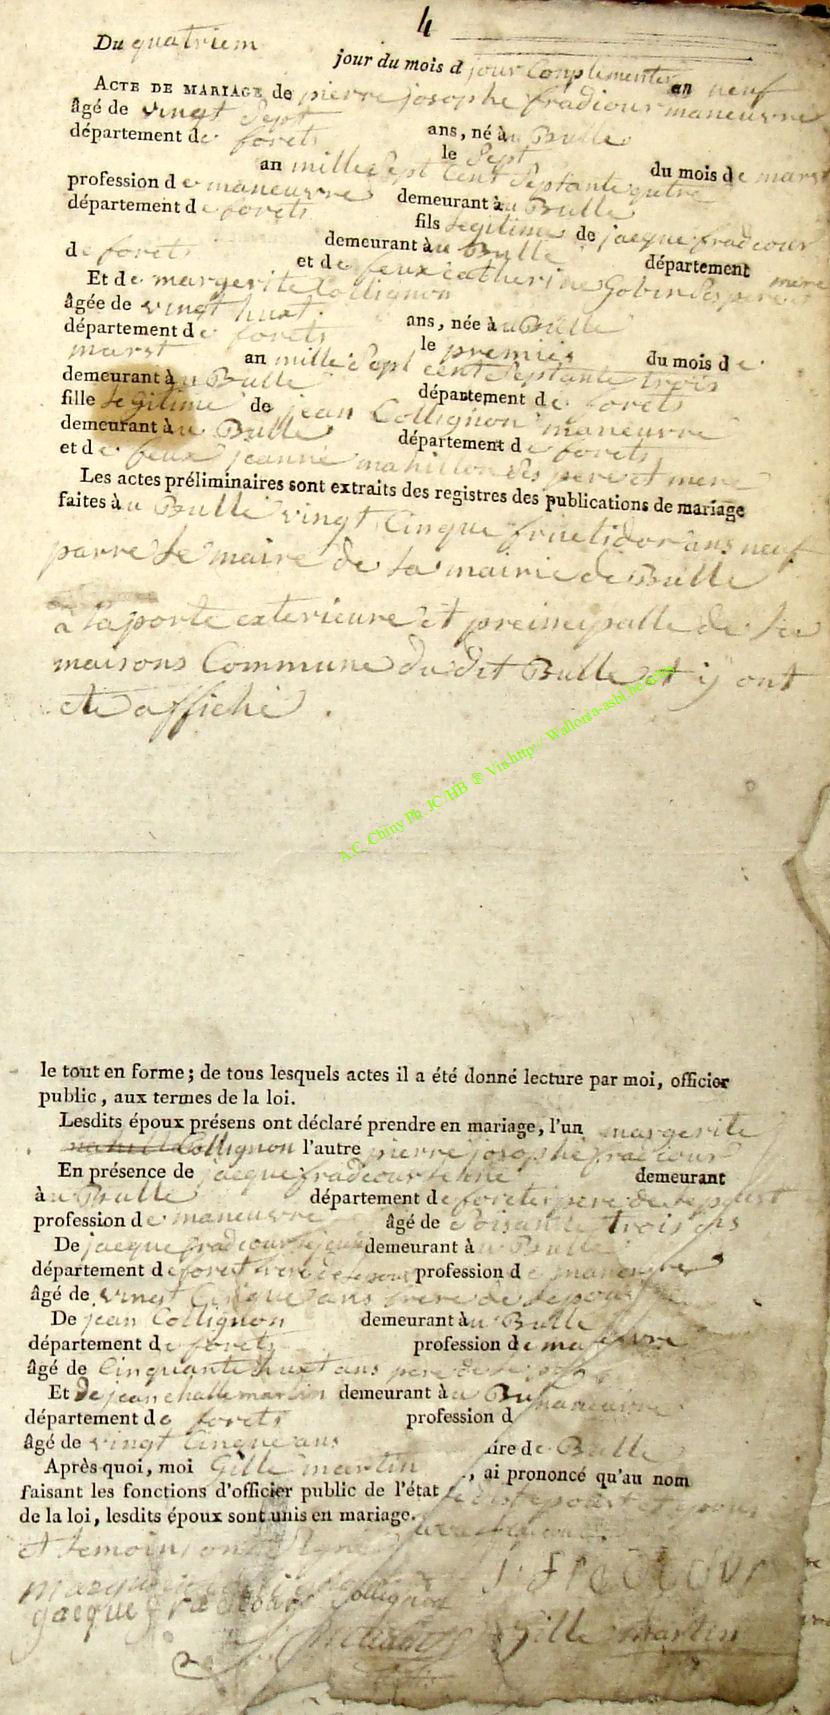 4
Du quatriem jour du mois d jour Conplementer an neuf
ACTE DE MARIAGE de pierre josophe fradcour maneuvre
âgé de vingt Sept ans, né àu Bulle
département de forets le Sept du mois de marst
an mille Sept Cent Septante qutre
profession de maneuvre demeurant àu Bulle
département de forets fils legitime de jacque fradcour
demeurant àu Bulle département
de forets et de feux catherine Gobin Ses pere et mere
Et de margerite Collignon
âgée de vingt huit ans, née àu Bulle
département de forets le premier du mois de
marst an mille Sept cent Septante trois
demeurant àu Bulle département de forets
fille legitime de jean Collignon maneuvre
demeurant àu Bulle département de forets
et de feux jeanne mahillon Ses pere et mere
Les actes préliminaires sont extraits des registres des publications de mariage
faites àu Bulle vingt Cinque fructidor ans neuf
parre le maire de la mairie de Bulle
à la porte exterieure et preincipalle de la
maisons Commune du dit Bulle et y ont
ete affiché.
A.C. Chiny Ph. JC HB ® Via http:// Wallonia-asbl.be
le tout en forme; de tous lesquels actes il a été donné lecture par moi, officier
public, aux termes de la loi.
Lesdits époux présens ont déclaré prendre en mariage, l'un margerite
Collignon l'autre pierre josophe fradcour
En présence de jacque fradcour demeurant
àu Bulle département de forets pere de
profession de maneuvre âgé de Soisante trois ans
De jacque fradcour demeurant àu Bulle
département de foret frere de profession de maneuvre
âgé de vingt Cinque ans frere de lepoux
De jean Collignon demeurant àu Bulle
département de forets profession de maneuvre
âgé de Cinquante huit ans pere de
Et De jean martin demeurant àu Bulle
département de forets profession d maneuvre
âgé de vingt Cinque ans
aire de Bulle
Après quoi, moi Gille martin, ai prononcé qu'au nom
faisant les fonctions d'officier public de l'état
de la loi, lesdits époux sont unis en mariage.
et temoins ont Signé
J. FRADCOUR
Collignon
jacque fradcour
Gille martin